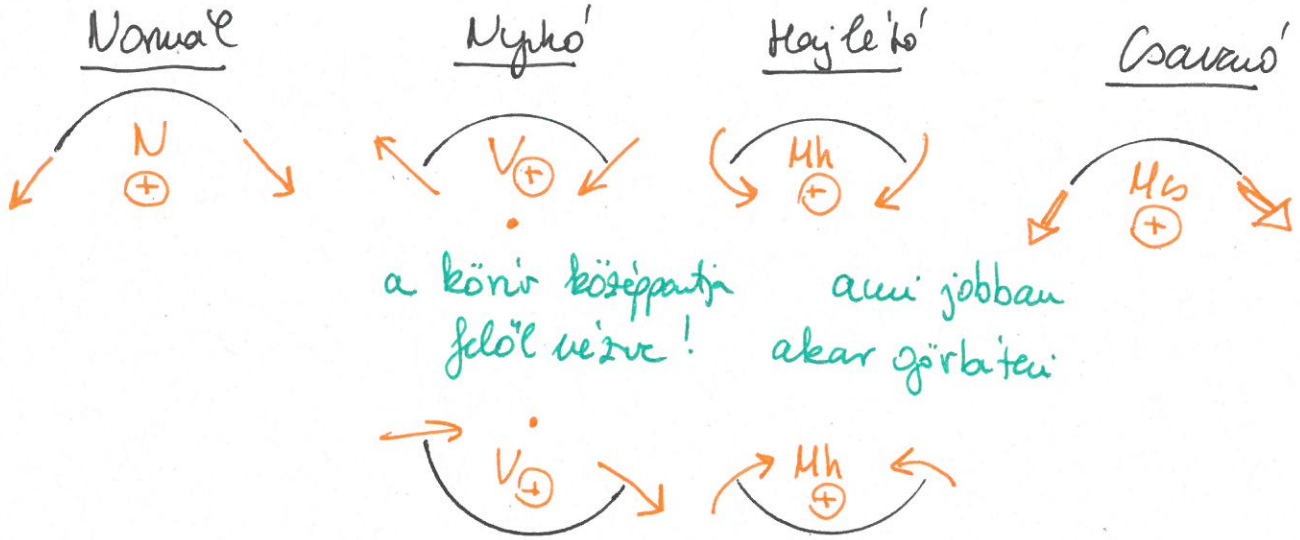 Normál
Nyíró
Hajlító
Csavaró
N
+
V
+
Mh
+
Mcs
+
a körív középpontja
felől nézve!
ami jobban
akar görbíteni
V
+
Mh
+